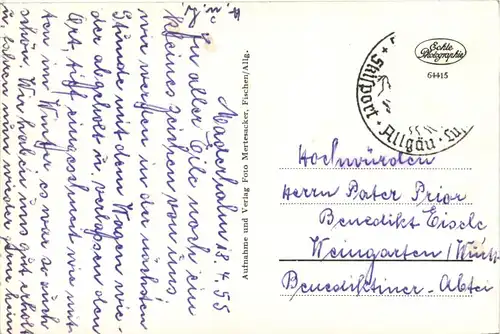 Maderhalm 18.4.55
In aller Eile noch ein
kleines Zeichen von uns
wir werden in der nächsten
Stunde mit dem Wagen wie-
der abgeholt u. verlassen den
Ort, tief eingeschneit wie mit-
ten im Winter es war so auch
schön. Wir haben uns gut erholt
u. kehren nun wieder heim
Aufnahme und Verlag Foto Mertesacker, Fischen/Allg.
Echte
Photographie
64415
Skisport · Allgäu
Hochwürden
Herrn Pater Prior
Benedikt Eisele
Weingarten/Württ
Benediktiner-Abtei